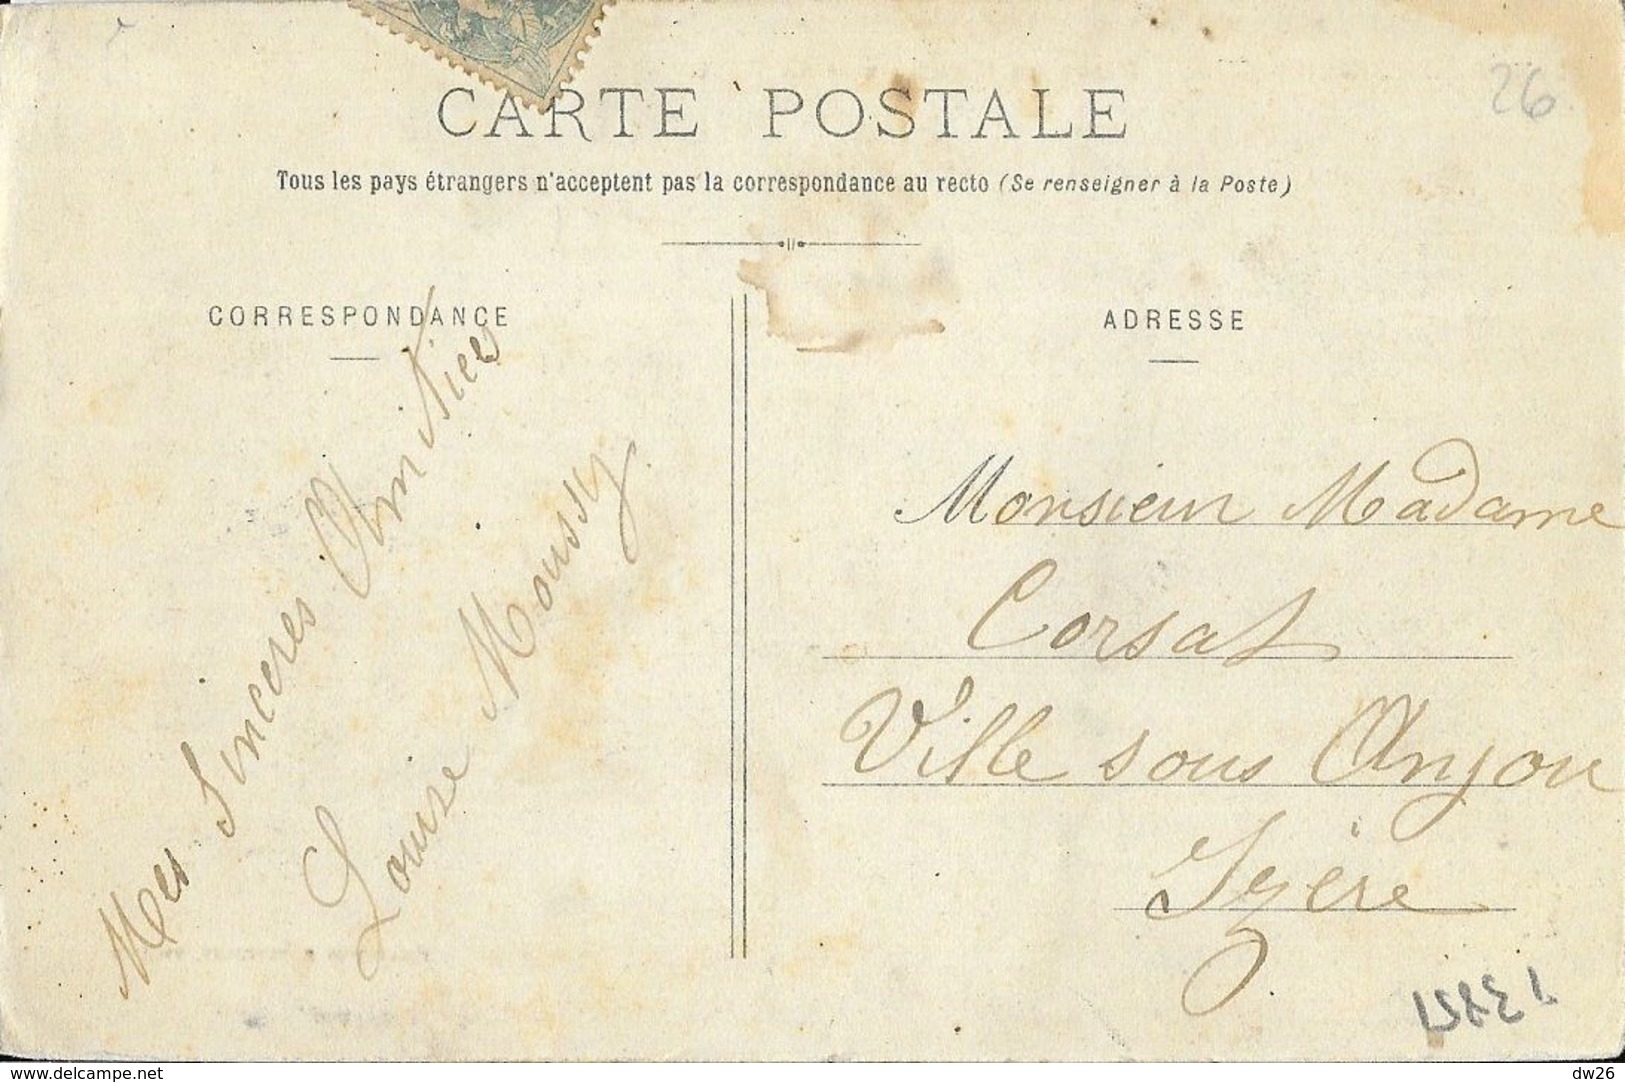 26
CARTE POSTALE
Tous les pays étrangers n'acceptent pas la correspondance au recto (Se renseigner à la Poste)
CORRESPONDANCE
Mes Sinceres Amitiees
Louise Moussy
ADRESSE
Monsieur Madame
Corsat
Ville sous Anjou
Izère
www.delcampe.net
dw26